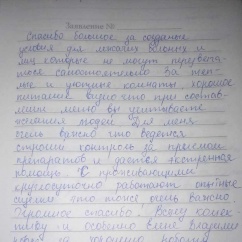 Заявление №
Спасибо большое за созданые
условия для лежачих больных и
лиц которые не могут передвига-
тся самостоятельно за теп-
лые и уютные комнаты хорошое
питание видно что при состав-
лении меню вы учитываете
желания людей для меня
очень важно что ведется
строгий контроль за приемом
препаратов и дается экстренная
помощь. С проживающими
круглосуточно работают опытные
сиделки это тоже очень важно.
Огромное спасибо! Всему колек
тиву и особенно
за хорошую работу